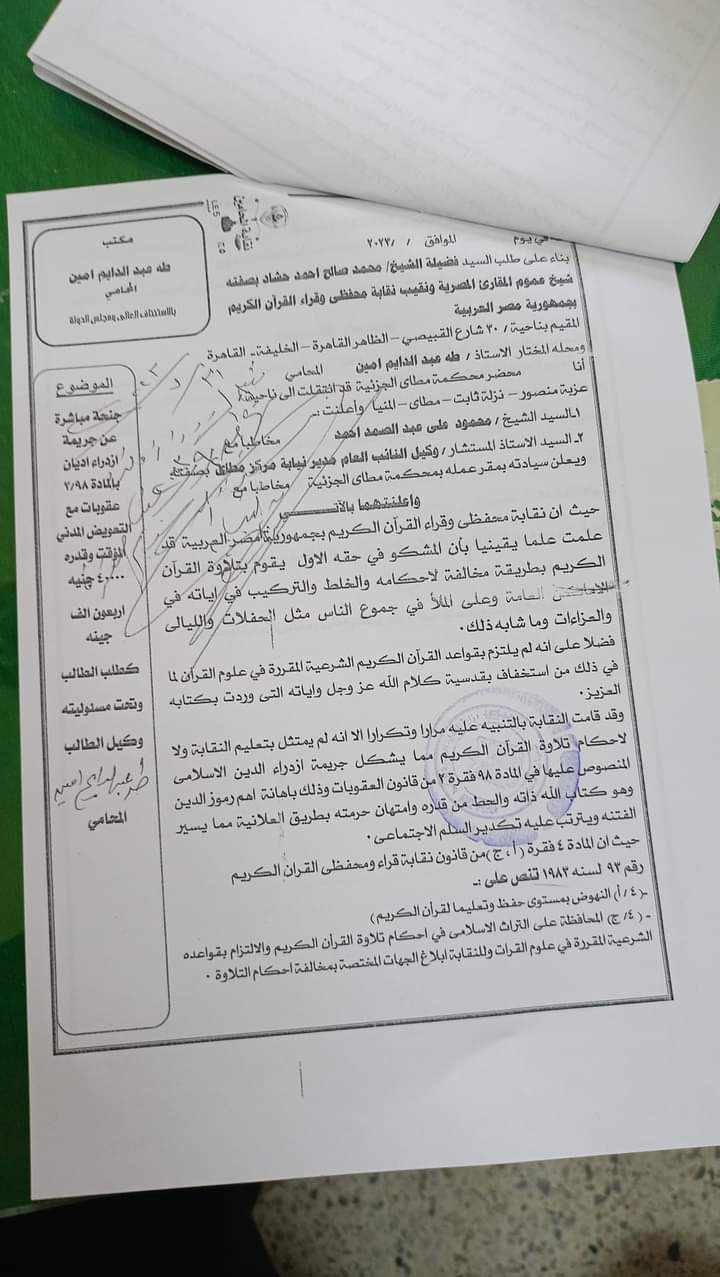 مكتب
طه عبد الدايم امين
المحامي
بالاستئناف العالى ومجلس الدولة
نقابة المحامين
في يوم الموافق / /٢٠٢٣
بناء على طلب السيد فضيلة الشيخ/ محمد صالح احمد حشاد بصفته
شيخ عموم المقارئ المصرية ونقيب نقابة محفظى وقراء القرآن الكريم
بجمهورية مصر العربية
المقيم بناحية / ٣٠ شارع القبيصي – الظاهر القاهرة – الخليفة – القاهرة
ومحله المختار الاستاذ / طه عبد الدايم امين المحامي
أنا محضر محكمة مطاى الجزئية قد انتقلت الى ناحية
عزبة منصور – نزلة ثابت – مطاى – المنيا وأعلنت :ـ
١ـ السيد الشيخ / محمود على عبد الصمد احمد مخاطبا مع
٢ـ السيد الاستاذ المستشار / وكيل النائب العام مدير نيابة مركز مطاى بصفته
ويعلن سيادته بمقر عمله بمحكمة مطاى الجزئية مخاطبا مع
واعلنتهما بالآتـــــي
حيث ان نقابة محفظى وقراء القرآن الكريم بجمهورية مصر العربية قد
علمت علما يقينيا بأن المشكو في حقه الاول يقوم بتلاوة القرآن
الكريم بطريقة مخالفة لاحكامه والخلط والتركيب في اياته في
الاماكن العامة وعلى الملأ في جموع الناس مثل الحفلات والليالى
والعزاءات وما شابه ذلك .
فضلا على انه لم يلتزم بقواعد القرآن الكريم الشرعية المقررة في علوم القرآن لما
في ذلك من استخفاف بقدسية كلام الله عز وجل واياته التى وردت بكتابه
العزيز .
وقد قامت النقابة بالتنبيه عليه مرارا وتكرارا الا انه لم يمتثل بتعليم النقابة ولا
لاحكام تلاوة القرآن الكريم مما يشكل جريمة ازدراء الدين الاسلامى
المنصوص عليها في المادة ٩٨ فقرة ٢ من قانون العقوبات وذلك باهانة اهم رموز الدين
وهو كتاب الله ذاته والحط من قدره وامتهان حرمته بطريق العلانية مما يسير
الفتنه ويترتب عليه تكدير السلم الاجتماعى .
حيث ان المادة ٤ فقرة ( أ ، ج ) من قانون نقابة قراء ومحفظى القران الكريم
رقم ٩٣ لسنه ١٩٨٣ تنص على :ـ
ـ( ٤ / أ ) النهوض بمستوى حفظ وتعليما لقرأن الكريم )
- ( ٤/ ج ) المحافظة على التراث الاسلامى في احكام تلاوة القرآن الكريم والالتزام بقواعده
الشرعية المقررة في علوم القرات وللنقابة ابلاغ الجهات المختصة بمخالفة احكام التلاوة .
الموضوع
جنحة مباشرة
عن جريمة
ازدراء اديان
بالمادة ٢/٩٨
عقوبات مع
التعويض المدني
المؤقت وقدره
٤٠٠٠٠ جنيه
اربعون الف
جينه
كطلب الطالب
وتحت مسئوليته
وكيل الطالب
طه عبد الدايم امين
المحامي